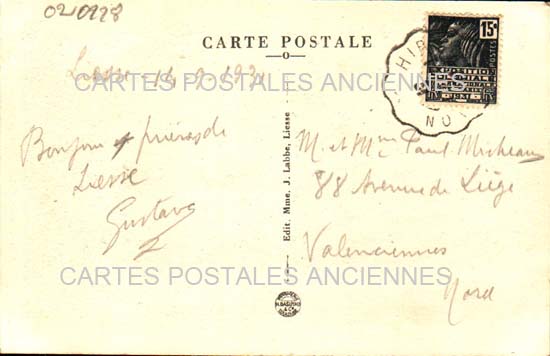 020928
CARTE POSTALE
Liesse
CARTES POSTALES ANCIENNES
HIR
NO
15c
POSTES
1931
Bonjour + prières de
Liesse
Gustave
Edit. Mme. J. Labbe, Liesse
M. et Mme Paul
88 Avenue de Liège
Valenciennes
Nord
CARTES POSTALES ANCIENNES